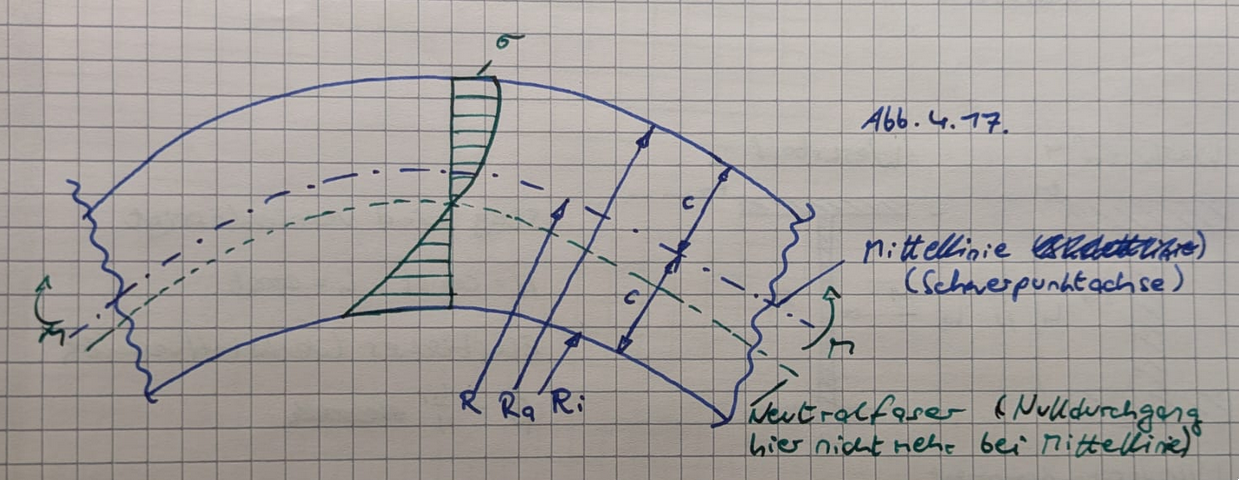 σ
Abb. 4.17.
c
Mittellinie
(Schwerpunktachse)
c
M
M
R Ra Ri
Neutralfaser (Nulldurchgang
hier nicht mehr bei Mittellinie)